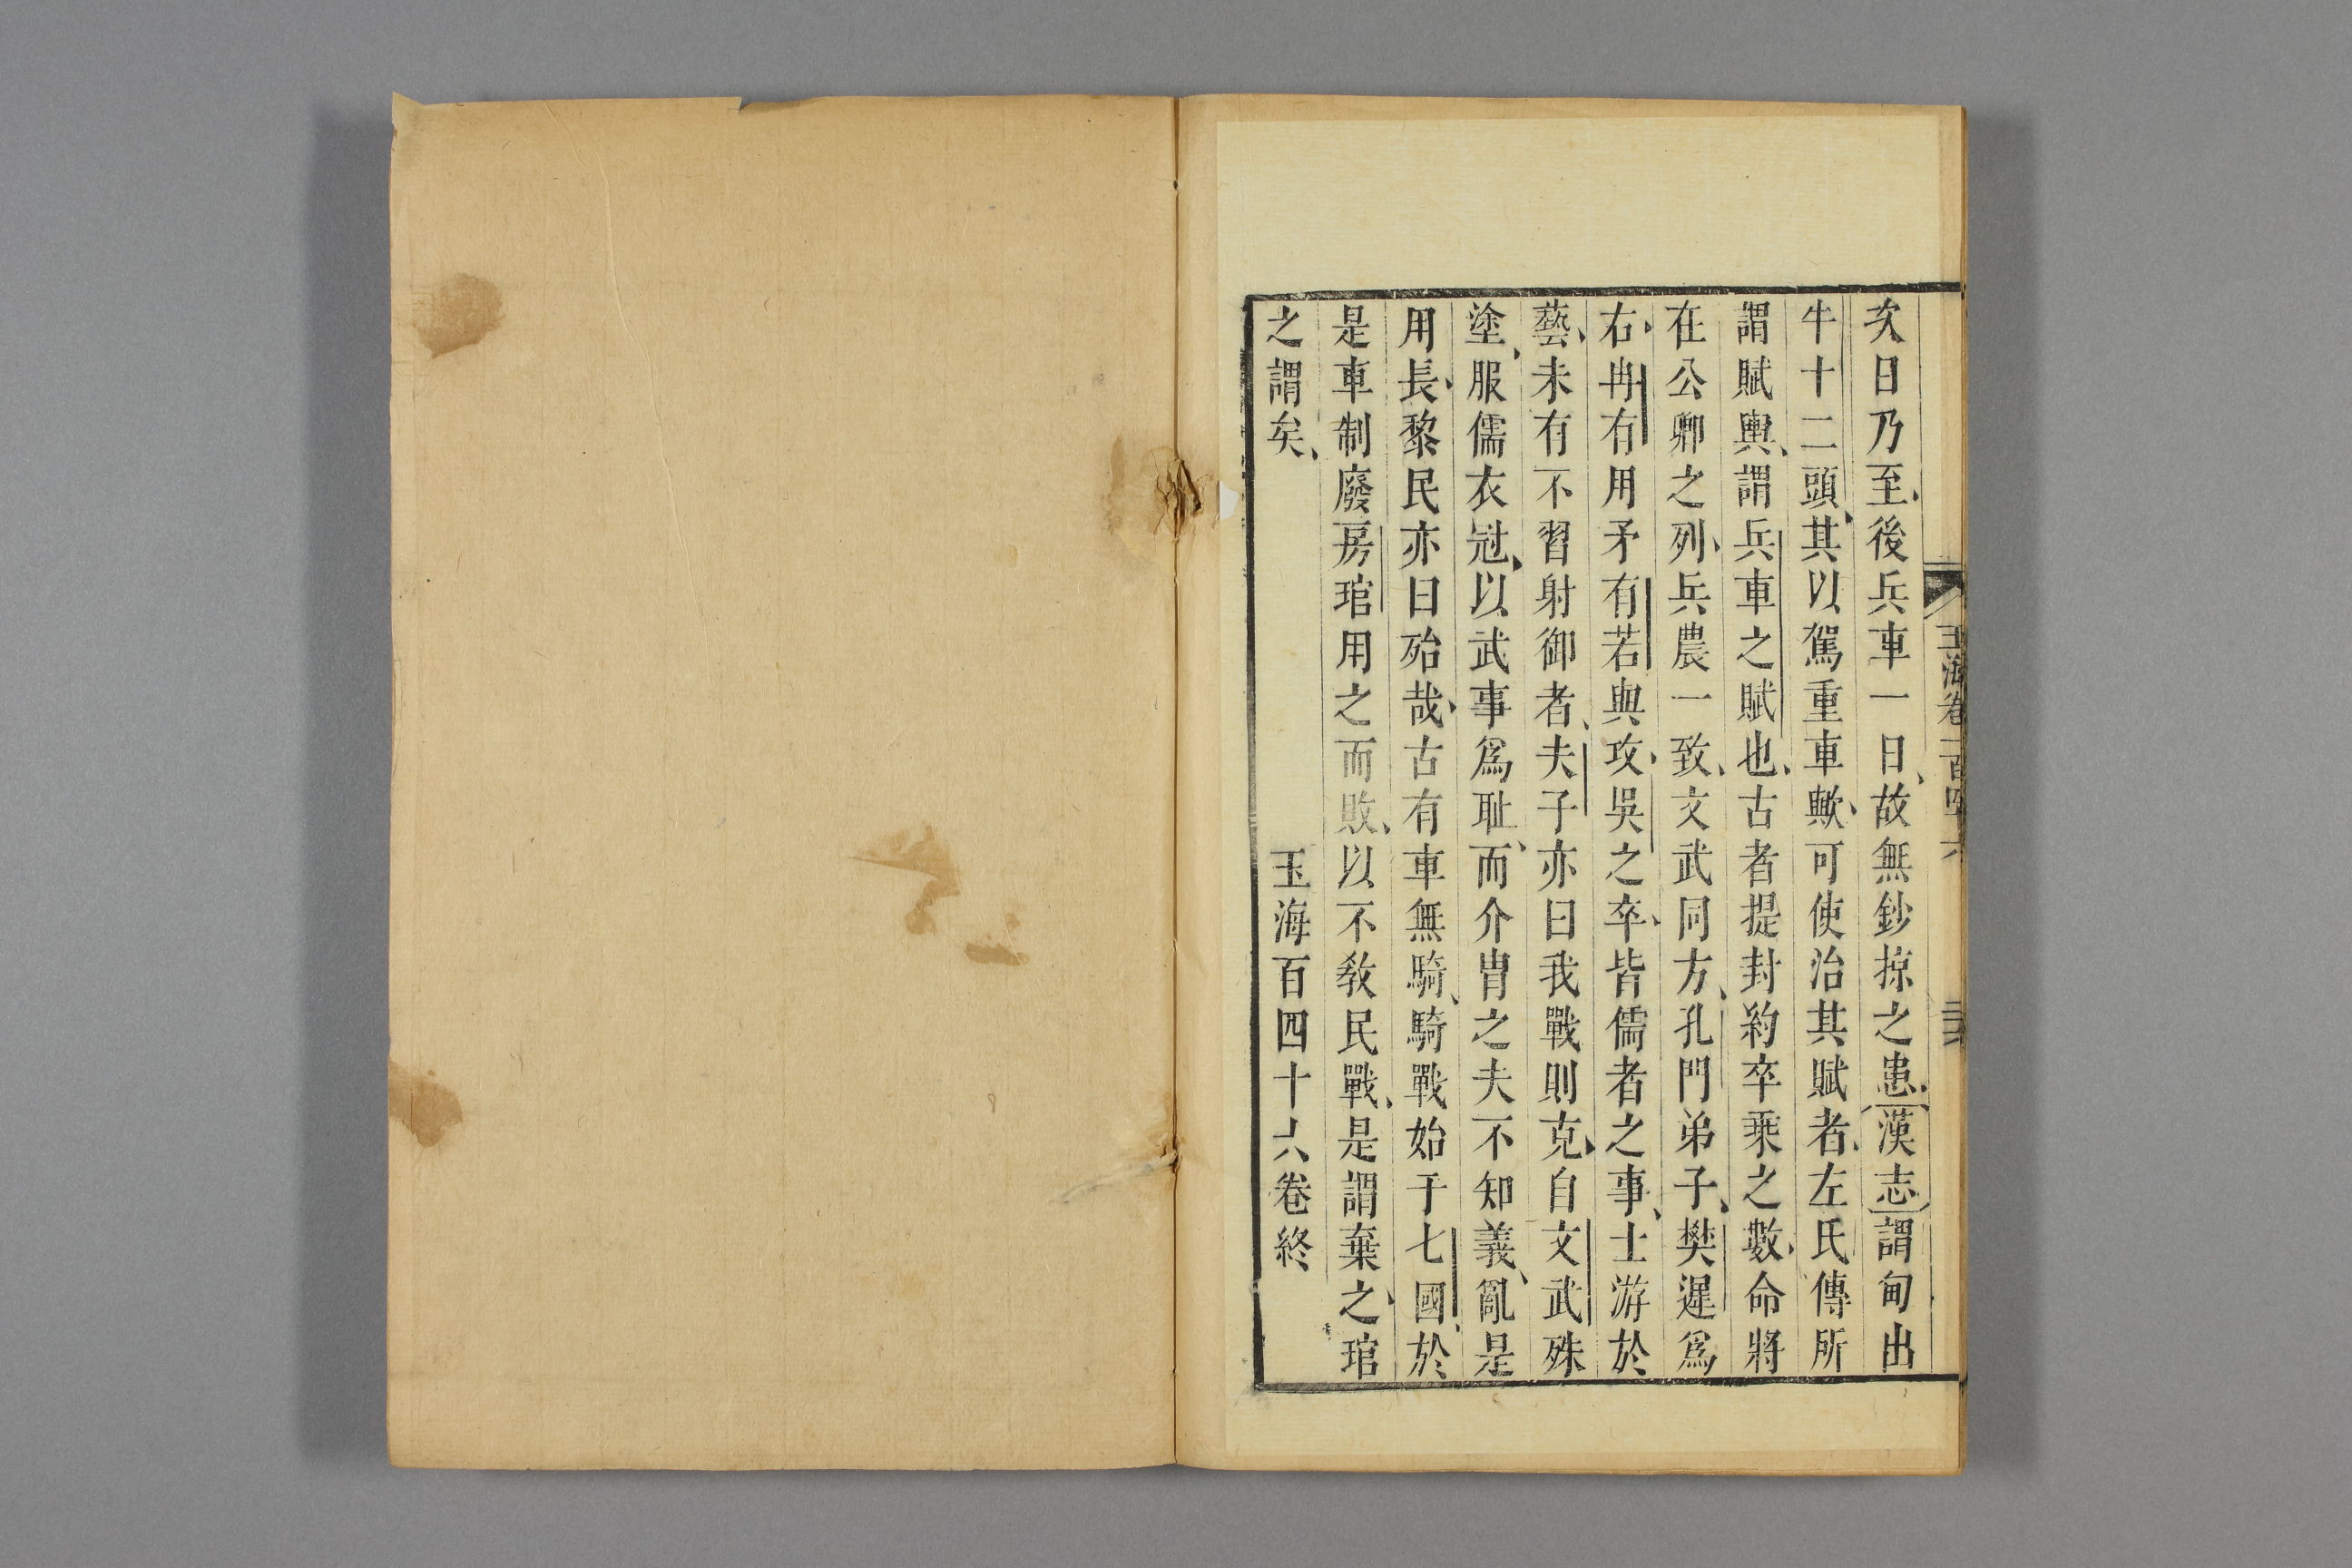 玉海卷一百四十六
次日乃至後兵車一日故無鈔掠之患漢志謂甸出
牛十二頭其以駕重車歟可使治其賦者左氏傳所
謂賦輿謂兵車之賦也古者提封約卒乘之數命將
在公卿之列兵農一致文武同方孔門弟子樊遲爲
右冉有用矛有若與攻吳之卒皆儒者之事士游於
藝未有不習射御者夫子亦曰我戰則克自文武殊
塗服儒衣冠以武事爲耻而介冑之夫不知義亂是
用長黎民亦曰殆哉古有車無騎騎戰始于七國於
是車制廢房琯用之而敗以不敎民戰是謂棄之琯
之謂矣
玉海百四十六卷終